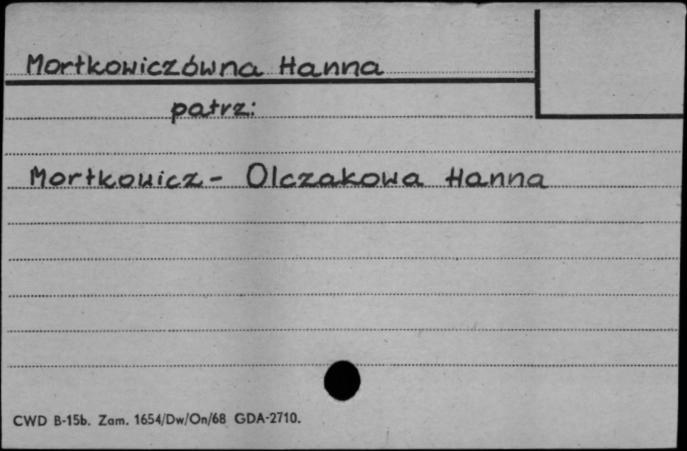 Mortkowiczówna Hanna
patrz:
Mortkowicz - Olczakowa Hanna
CWD B-15b. Zam. 1654/Dw/On/68 GDA-2710.